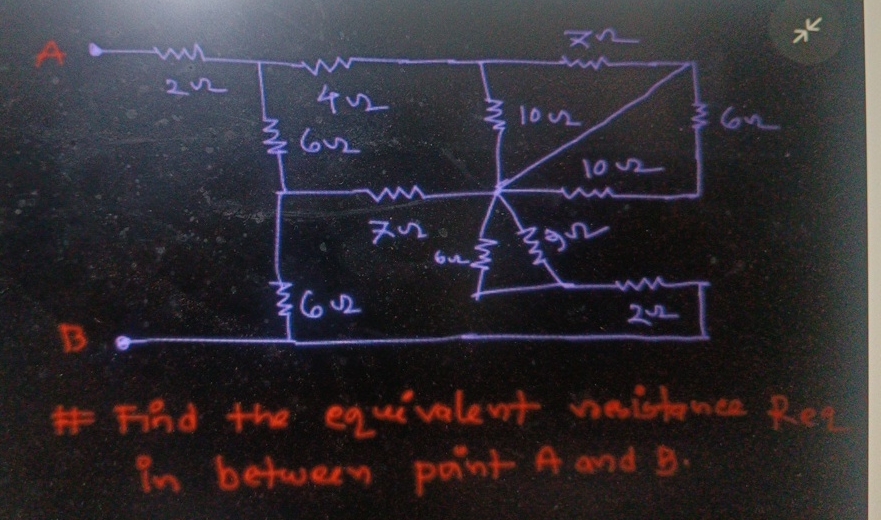 A
2Ω
4Ω
7Ω
6Ω
10Ω
6Ω
10Ω
7Ω
6Ω
9Ω
6Ω
2Ω
B
# Find the equivalent resistance Req
in between point A and B.